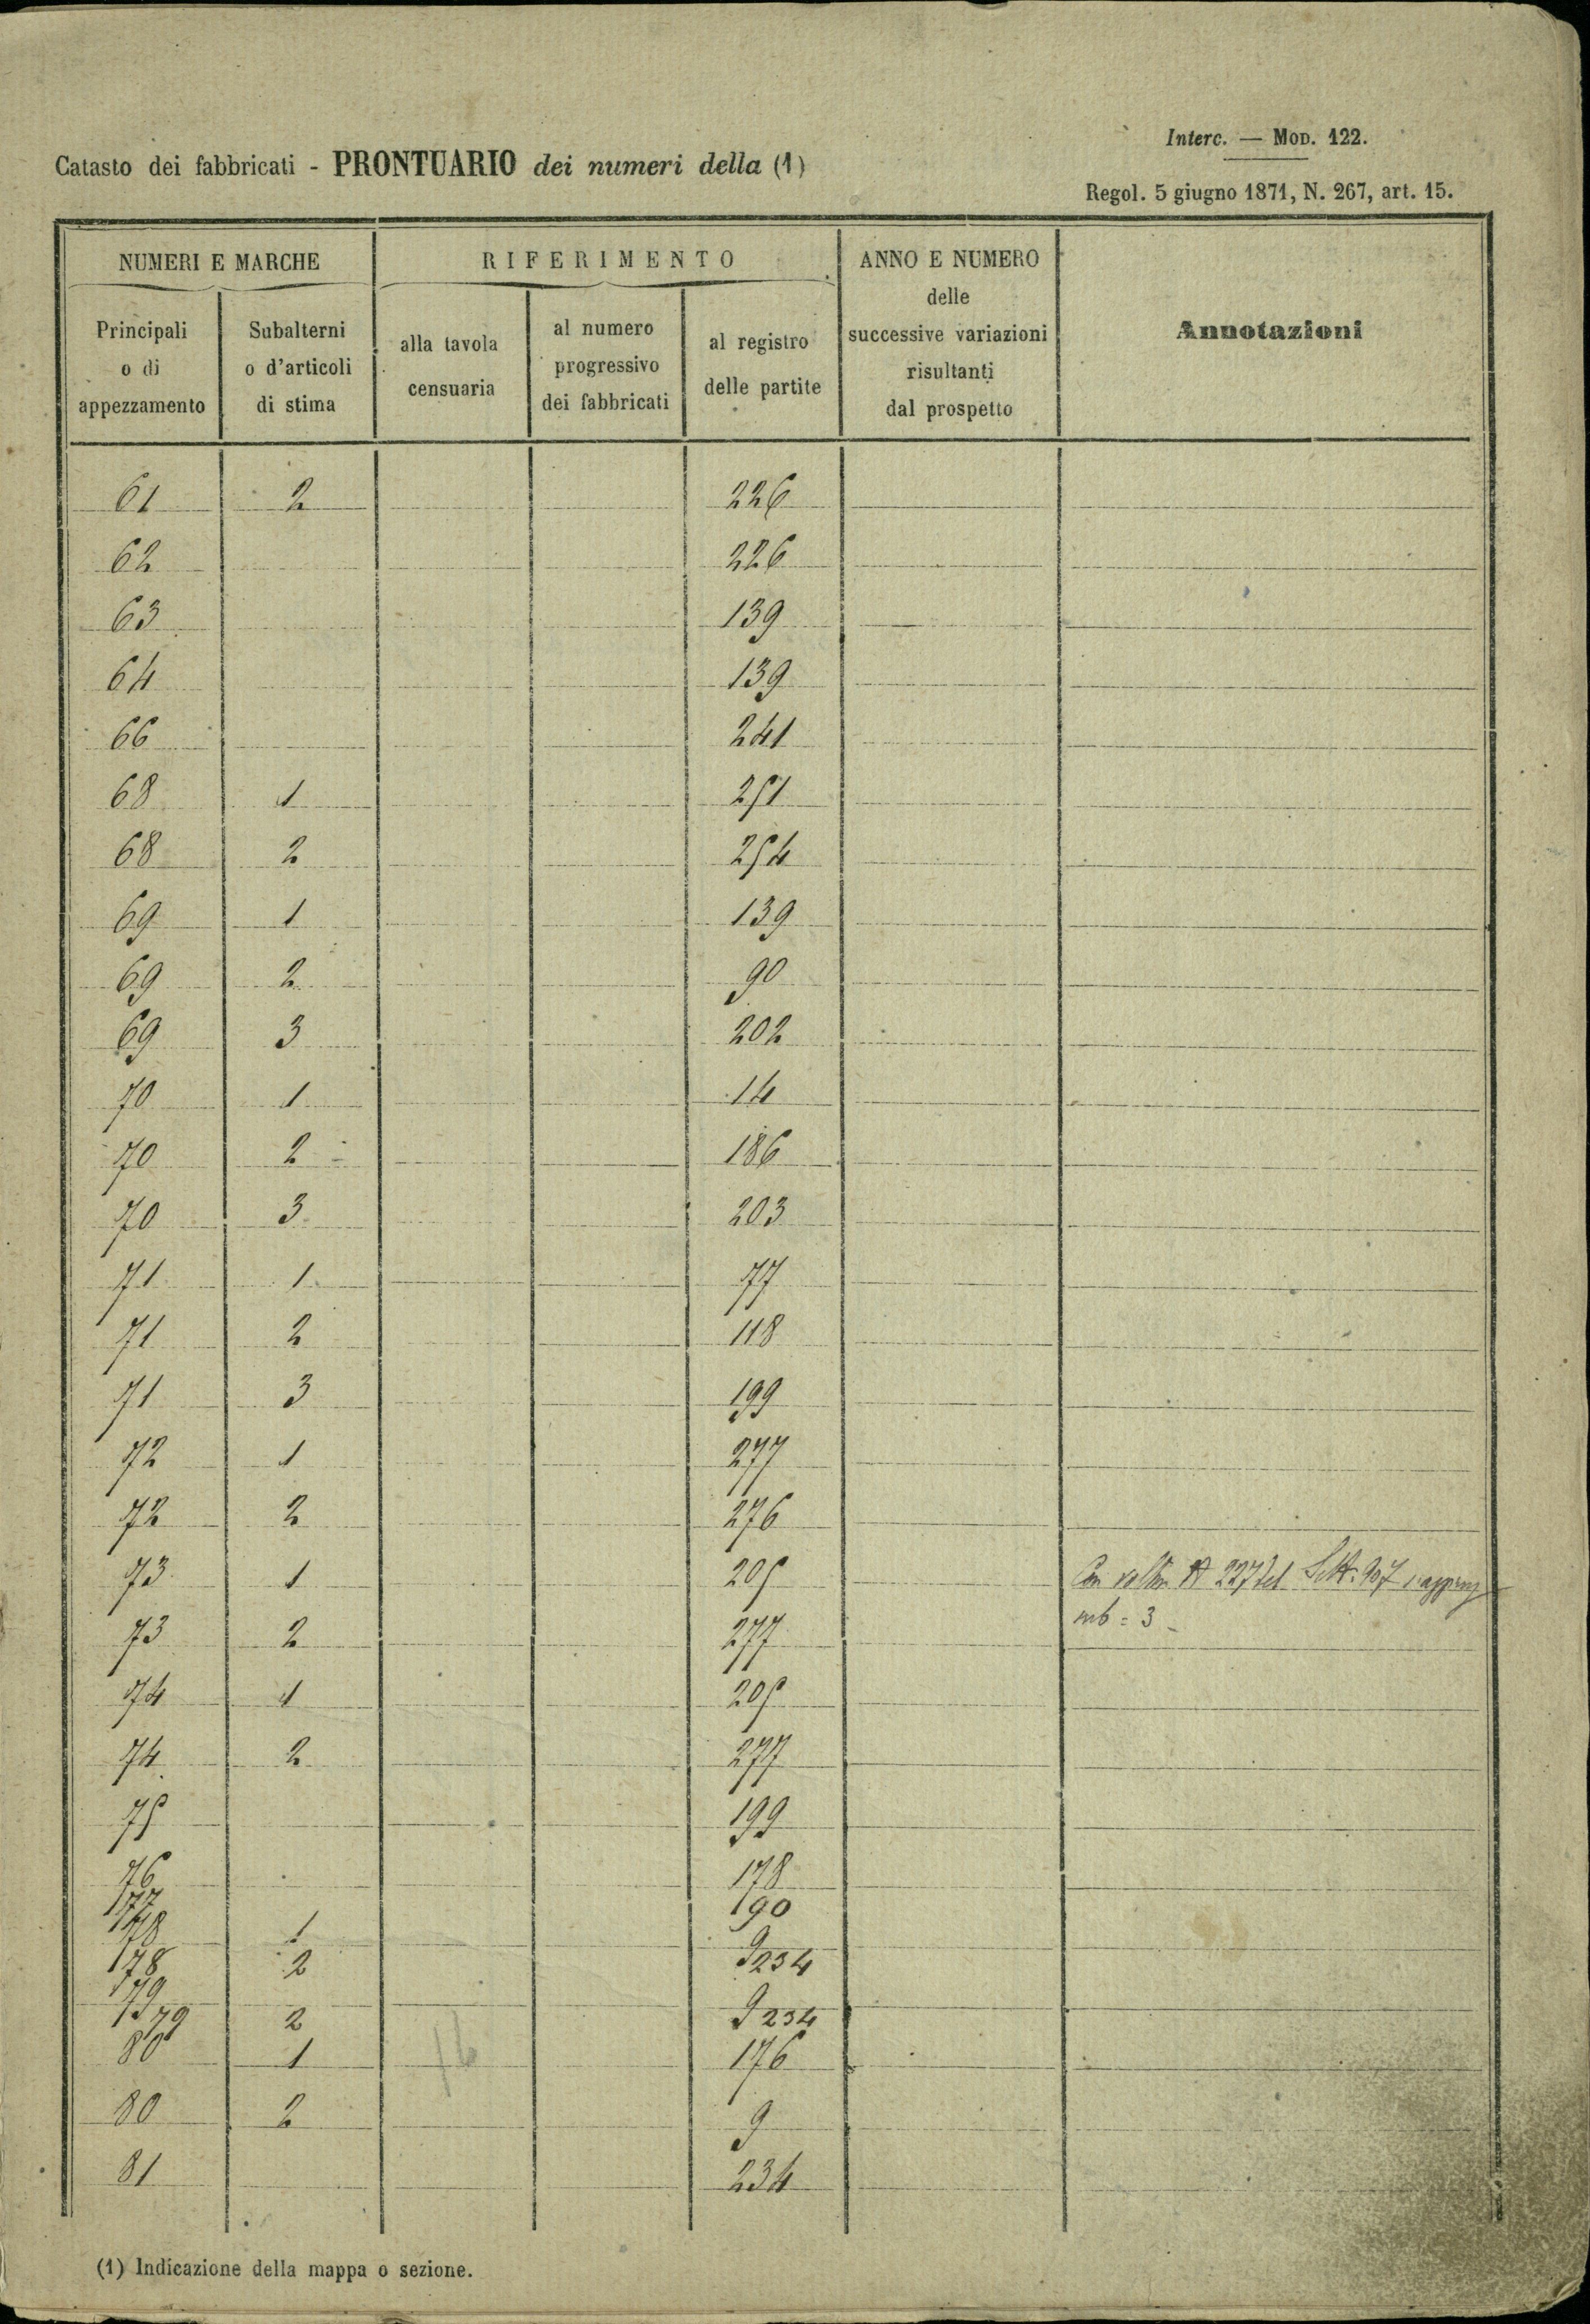 Interc. — Mod. 122.
Catasto dei fabbricati - PRONTUARIO dei numeri della (1)
Regol. 5 giugno 1871, N. 267, art. 15.
NUMERI E MARCHE RIFERIMENTO ANNO E NUMERO
delle
successive variazioni
risultanti
dal prospetto
Annotazioni
Principali
o di
appezzamento
Subalterni
o d'articoli
di stima
alla tavola
censuaria
al numero
progressivo
dei fabbricati
al registro
delle partite
61 2 226
62 226
63 139
64 139
66 241
68 1 251
68 2 254
69 1 139
69 2 90
69 3 202
70 1 14
70 2 186
70 3 203
71 1 77
71 2 118
71 3 199
72 1 277
72 2 276
73 1 205 227 del
73 2 277 = 3
74 1 205
74 2 277
75 199
76 178
190
1
178 2 9 234
179 2 9 234
80 1 176
80 2 9
81 234
(1) Indicazione della mappa o sezione.